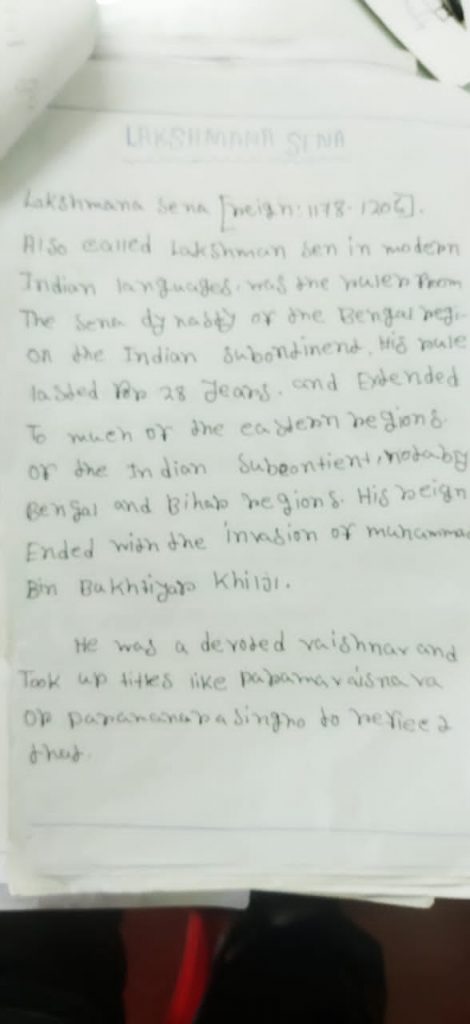 LAKSHMANA SENA
Lakshmana Sena [reign: 1178-1206].
Also called Lakshman Sen in modern
Indian languages, was the ruler from
The Sena dynasty of the Bengal regi-
on the Indian Subontinent. His rule
lasted for 28 Years. and Extended
To much of the eastern regions.
of the Indian Subcontient, notably
Bengal and Bihar regions. His reign
Ended with the invasion of muhamma
Bin Bakhtiyar Khilji.
He was a devoted vaishnav and
Took up titles like paramavaisnava
or singho to
that.